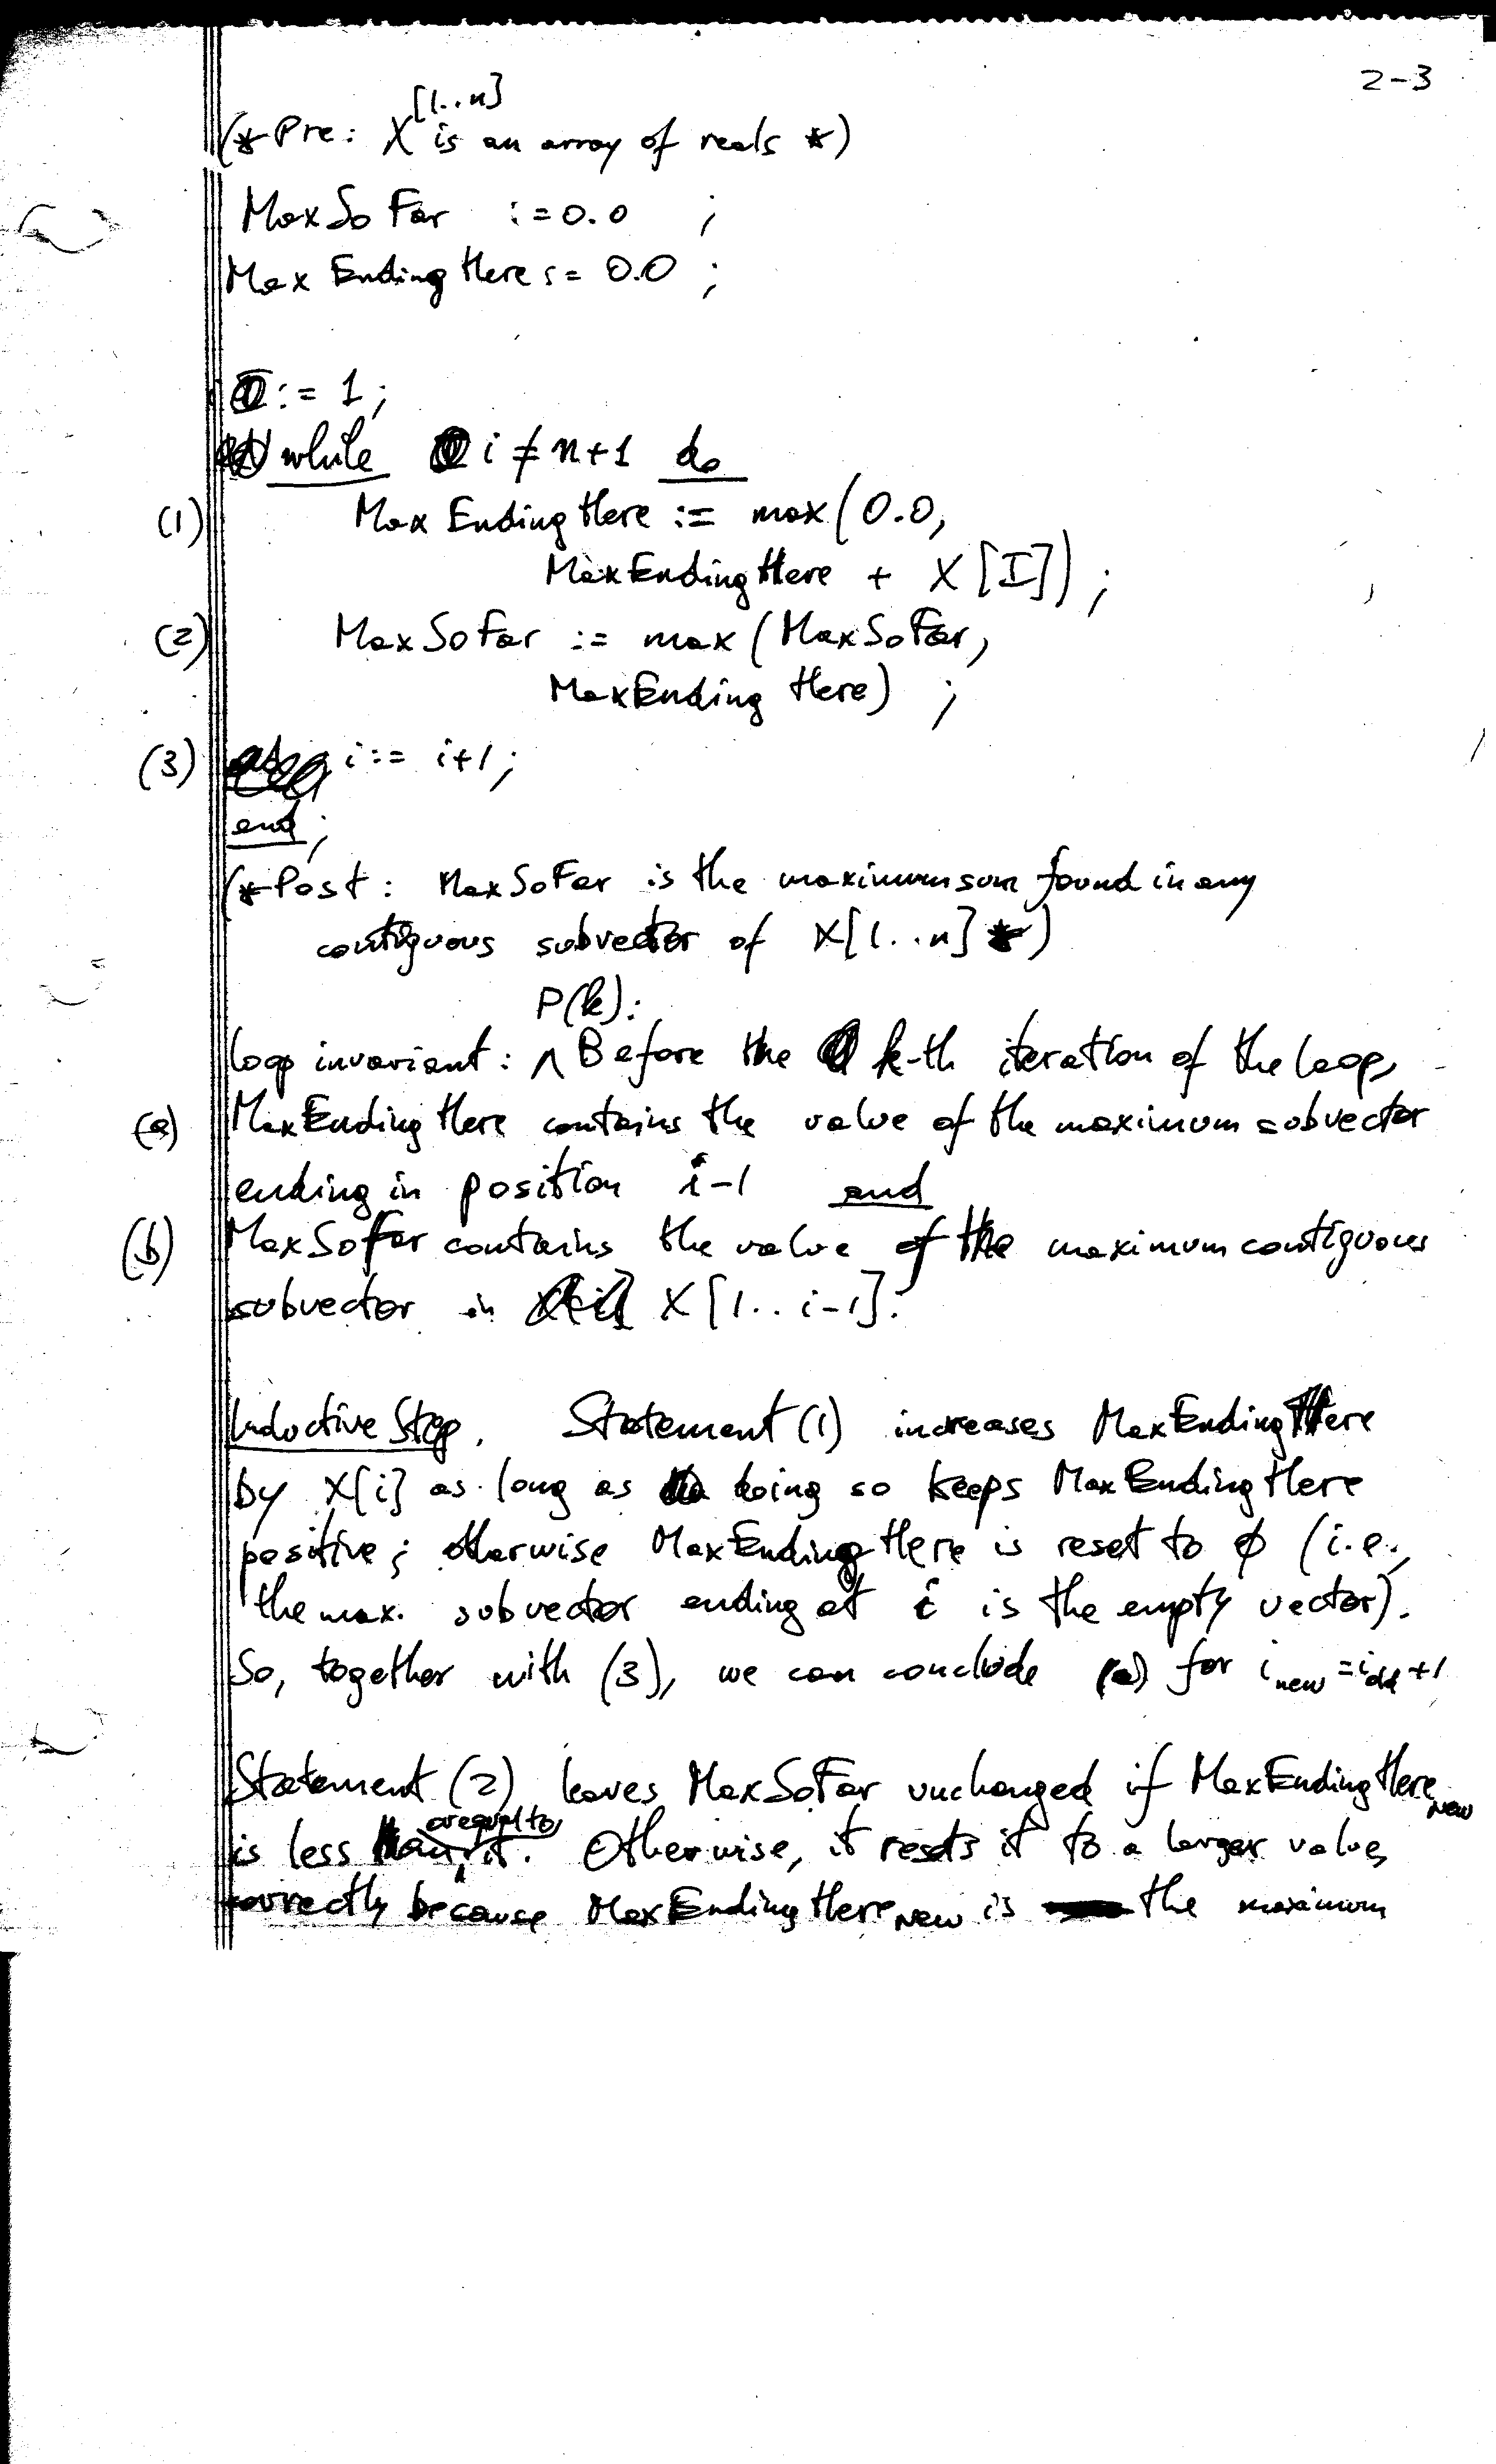 2-3
[1..n]
(* Pre: X is an array of reals *)
MaxSoFar := 0.0 ;
MaxEndingHere := 0.0 ;
I := 1;
while i ≠ n+1 do
(1) MaxEndingHere := max(0.0,
MaxEndingHere + X[I]);
(2) MaxSoFar := max(MaxSoFar,
MaxEndingHere) ;
(3) i := i+1;
end;
(* Post: MaxSoFar is the maximum sum found in any
contiguous subvector of X[1..n] *)
P(k):
loop invariant: ∧ Before the k-th iteration of the loop,
(a) MaxEndingHere contains the value of the maximum subvector
ending in position i-1 and
(b) MaxSoFar contains the value of the maximum contiguous
subvector in X[1..i-1].
Inductive Step. Statement (1) increases MaxEndingHere
by X[i] as long as doing so keeps MaxEndingHere
positive; otherwise MaxEndingHere is reset to ∅ (i.e.,
the max. subvector ending at i is the empty vector).
So, together with (3), we can conclude (a) for i new = i old + 1
Statement (2) leaves MaxSoFar unchanged if MaxEndingHere new
or equal to
is less than it. Otherwise, it resets it to a larger value,
correctly because MaxEndingHere new is the maximum